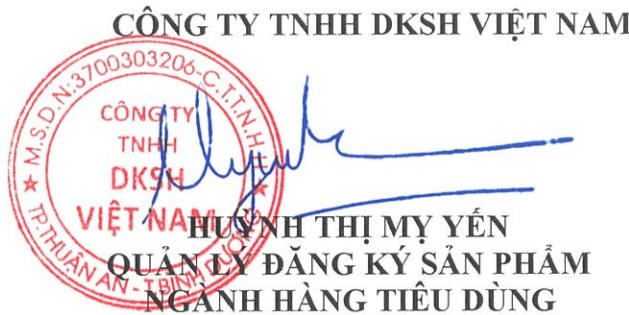 CÔNG TY TNHH DKSH VIỆT NAM
M.S.D.N:3700303206-C.T.T.N.H.H
CÔNG TY
TNHH
DKSH
VIỆT NAM
TP.THUẬN AN - T.BÌNH DƯƠNG
HUỲNH THỊ MỴ YẾN
QUẢN LÝ ĐĂNG KÝ SẢN PHẨM
NGÀNH HÀNG TIÊU DÙNG